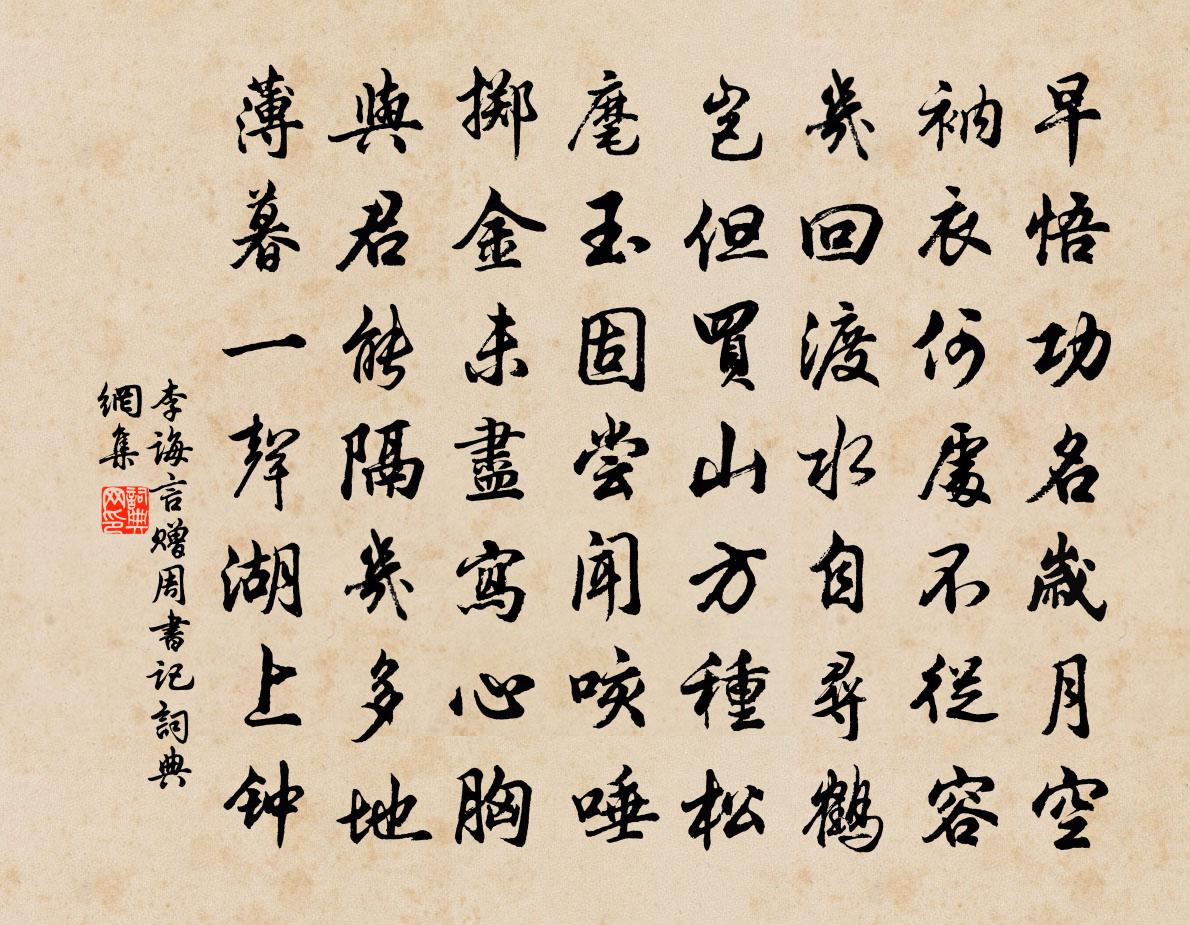 早悟功名歲月空
衲衣何處不從容
幾回渡水自尋鶴
豈但買山方種松
麾玉固嘗聞咳唾
擲金未盡寫心胸
與君能隔幾多地
薄暮一聲湖上钟
李誨言赠周書記詞典
網集
詞典
网印